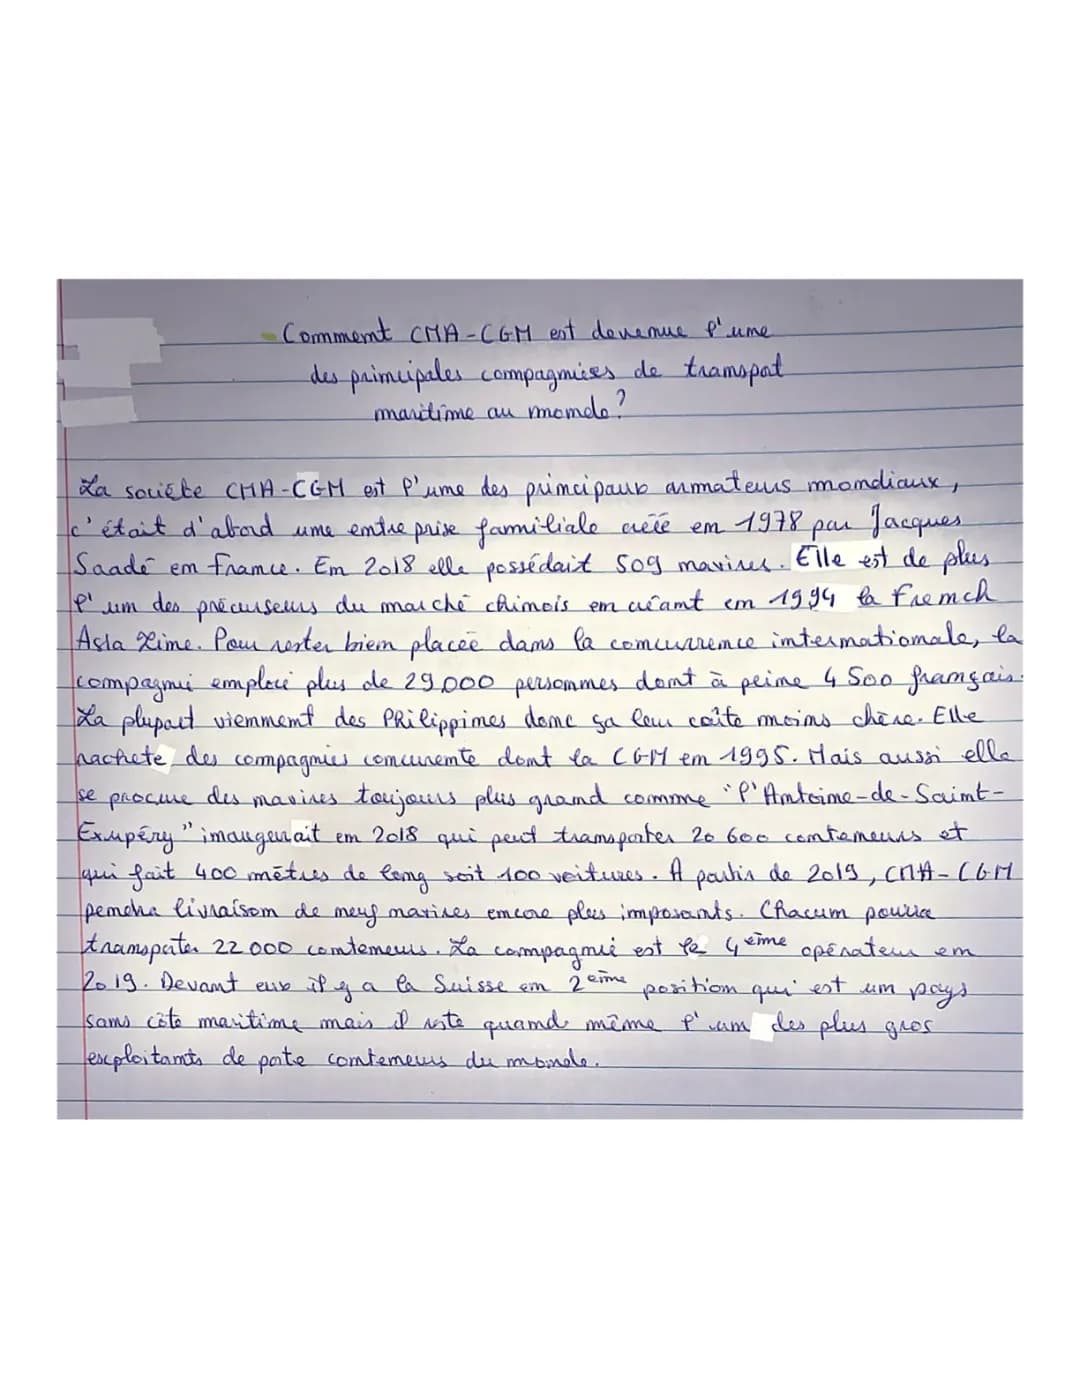 Comment CMA-CGM est devenue l'une
des principales compagnies de transpot
maritime au monde?
La société CMA-CGM est l'une des principaux armateurs mondiaux,
c'était d'abord une entreprise familiale créé en 1978 par Jacques
Saadé en France. En 2018 elle possédait 509 navires. Elle est de plus
l'un des précurseurs du marché chinois en créant en 1994 la French
Asia Line. Pour rester bien placée dans la concurrence internationale, la
compagni emploie plus de 29.000 personnes dont à peine 4 500 français.
La plupart viennent des PHilippines donc ça leur coûte moins chère. Elle
rachete des compagnies concurente dont la CGM en 1995. Mais aussi elle
se procure des navires toujours plus grand comme "l'Antoine-de-Saint-
Exupéry" inaugurait en 2018 qui peut transporter 20 600 conteneurs et
qui fait 400 mètres de long soit 100 voitures. A partir de 2019, CMA-CGM
pendra livraison de neuf navires encore plus imposants. Chacun pourra
transpoter 22 000 conteneurs. La compagnie est le 4ème opérateur en
2019. Devant eux il y a la Suisse en 2ème position qui est un pays
sans côte maritime mais il reste quand même l'un des plus gros
exploitants de pote conteneurs du monde.